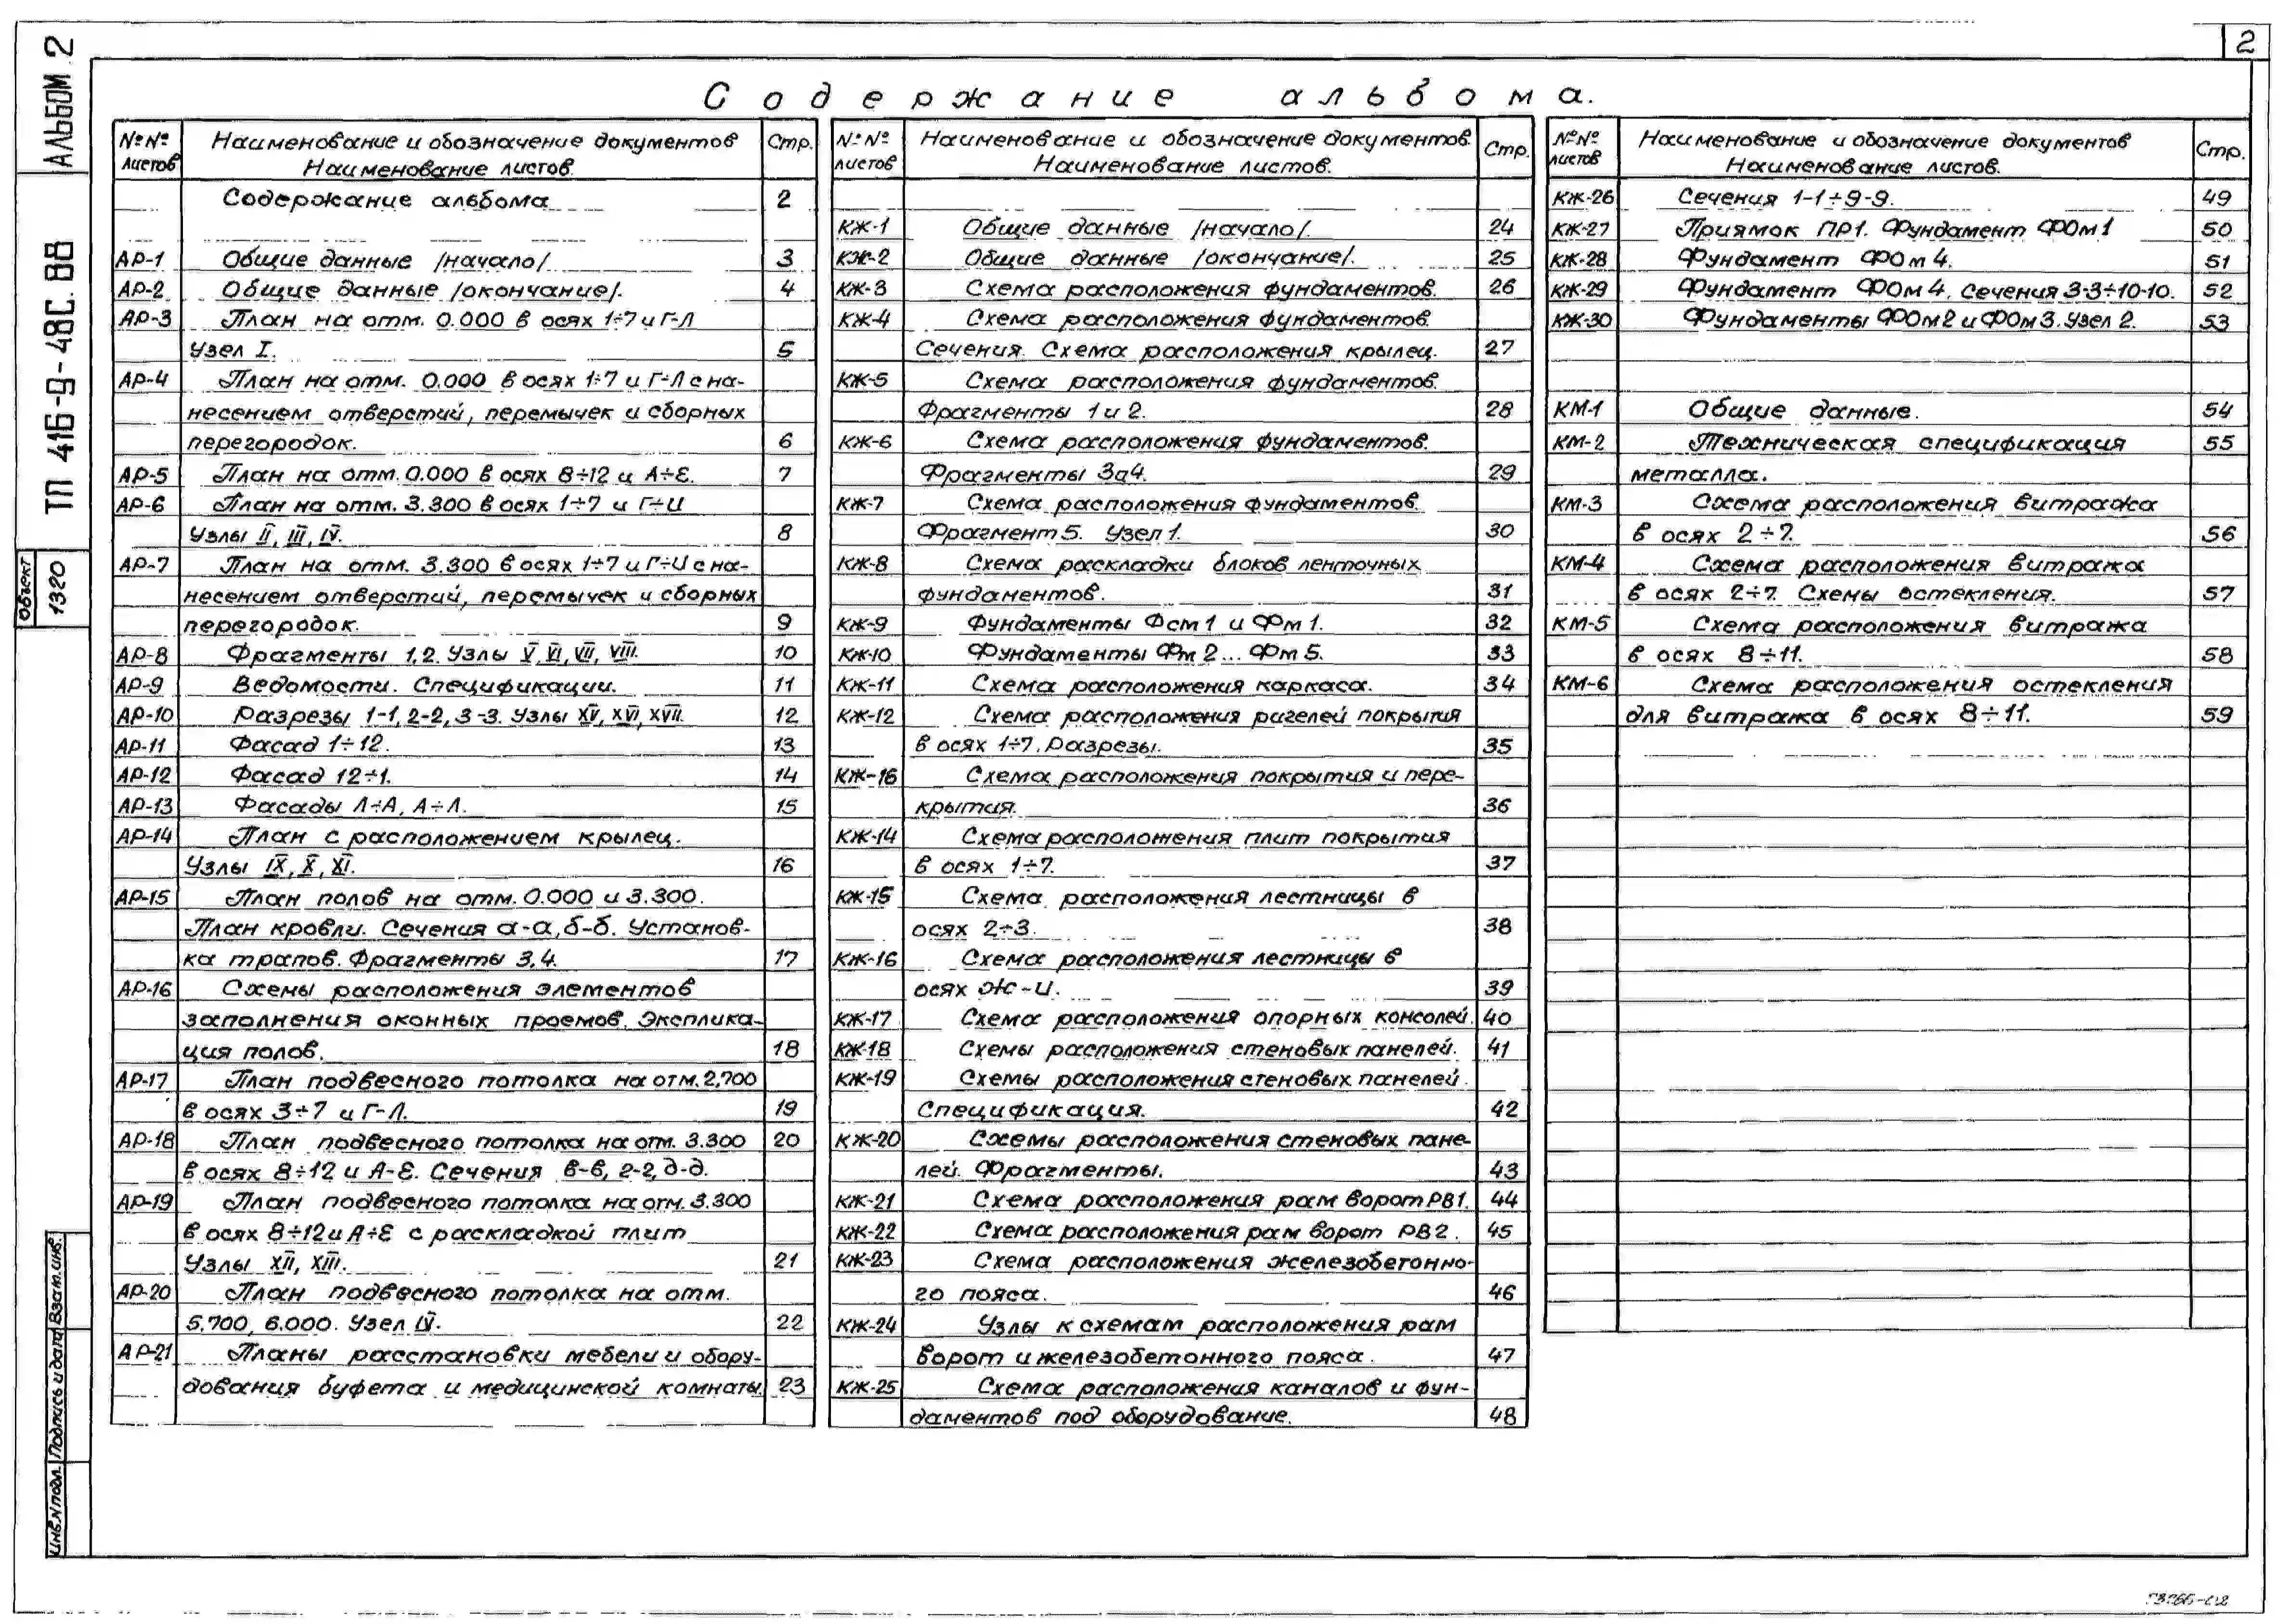 2
АЛЬБОМ 2
ТП 416-9-48С.88
Объект
1320
Содержание альбома.
№№ листов
Наименование и обозначение документов
Наименование листов.
Стр.
Содержание альбома 2
АР-1 Общие данные /начало/. 3
АР-2 Общие данные /окончание/. 4
АР-3 План на отм. 0.000 в осях 1÷7 и Г-Л
Узел I. 5
АР-4 План на отм. 0.000 в осях 1÷7 и Г÷Л с на-
несением отверстий, перемычек и сборных
перегородок. 6
АР-5 План на отм. 0.000 в осях 8÷12 и А÷Е. 7
АР-6 План на отм. 3.300 в осях 1÷7 и Г÷И
Узлы II, III, IV. 8
АР-7 План на отм. 3.300 в осях 1÷7 и Г÷И с на-
несением отверстий, перемычек и сборных
перегородок. 9
АР-8 Фрагменты 1,2. Узлы V, VI, VII, VIII. 10
АР-9 Ведомости. Спецификации. 11
АР-10 Разрезы 1-1, 2-2, 3-3. Узлы XV, XVI, XVII. 12
АР-11 Фасад 1÷12. 13
АР-12 Фасад 12÷1. 14
АР-13 Фасады Л÷А, А÷Л. 15
АР-14 План с расположением крылец.
Узлы IX, X, XI. 16
АР-15 План полов на отм. 0.000 и 3.300.
План кровли. Сечения а-а, б-б. Установ-
ка трапов. Фрагменты 3,4. 17
АР-16 Схемы расположения элементов
заполнения оконных проемов. Эксплика-
ция полов. 18
АР-17 План подвесного потолка на отм. 2,700
в осях 3÷7 и Г-Л. 19
АР-18 План подвесного потолка на отм. 3.300 20
в осях 8÷12 и А-Е. Сечения в-в, г-г, д-д.
АР-19 План подвесного потолка на отм. 3.300
в осях 8÷12 и А÷Е с раскладкой плит
Узлы XII, XIII. 21
АР-20 План подвесного потолка на отм.
5.700, 6.000. Узел IV. 22
АР-21 Планы расстановки мебели и обору-
дования буфета и медицинской комнаты. 23
№№ листов
Наименование и обозначение документов.
Наименование листов.
Стр.
КЖ-1 Общие данные /начало/. 24
КЖ-2 Общие данные /окончание/. 25
КЖ-3 Схема расположения фундаментов. 26
КЖ-4 Схема расположения фундаментов.
Сечения. Схема расположения крылец. 27
КЖ-5 Схема расположения фундаментов.
Фрагменты 1 и 2. 28
КЖ-6 Схема расположения фундаментов.
Фрагменты 3а4. 29
КЖ-7 Схема расположения фундаментов.
Фрагмент 5. Узел 1. 30
КЖ-8 Схема раскладки блоков ленточных
фундаментов. 31
КЖ-9 Фундаменты Фсм1 и Фм1. 32
КЖ-10 Фундаменты Фм2...Фм5. 33
КЖ-11 Схема расположения каркаса. 34
КЖ-12 Схема расположения ригелей покрытия
в осях 1÷7. Разрезы. 35
КЖ-16 Схема расположения покрытия и пере-
крытия. 36
КЖ-14 Схема расположения плит покрытия
в осях 1÷7. 37
КЖ-15 Схема расположения лестницы в
осях 2÷3. 38
КЖ-16 Схема расположения лестницы в
осях Ж-И. 39
КЖ-17 Схема расположения опорных консолей. 40
КЖ-18 Схемы расположения стеновых панелей. 41
КЖ-19 Схемы расположения стеновых панелей.
Спецификация. 42
КЖ-20 Схемы расположения стеновых пане-
лей. Фрагменты. 43
КЖ-21 Схема расположения рам ворот РВ1. 44
КЖ-22 Схема расположения рам ворот РВ2. 45
КЖ-23 Схема расположения железобетонно-
го пояса. 46
КЖ-24 Узлы к схемам расположения рам
ворот и железобетонного пояса. 47
КЖ-25 Схема расположения каналов и фун-
даментов под оборудование. 48
№№ листов
Наименование и обозначение документов
Наименование листов.
Стр.
КЖ-26 Сечения 1-1÷9-9. 49
КЖ-27 Приямок ПР1. Фундамент ФОм1 50
КЖ-28 Фундамент ФОм4. 51
КЖ-29 Фундамент ФОм4. Сечения 3-3÷10-10. 52
КЖ-30 Фундаменты ФОм2 и ФОм3. Узел 2. 53
КМ-1 Общие данные. 54
КМ-2 Техническая спецификация 55
металла.
КМ-3 Схема расположения витража
в осях 2÷7. 56
КМ-4 Схема расположения витража
в осях 2÷7. Схемы остекления. 57
КМ-5 Схема расположения витража
в осях 8÷11. 58
КМ-6 Схема расположения остекления
для витража в осях 8÷11. 59
Инв.N подл. Подпись и дата Взам.инв.